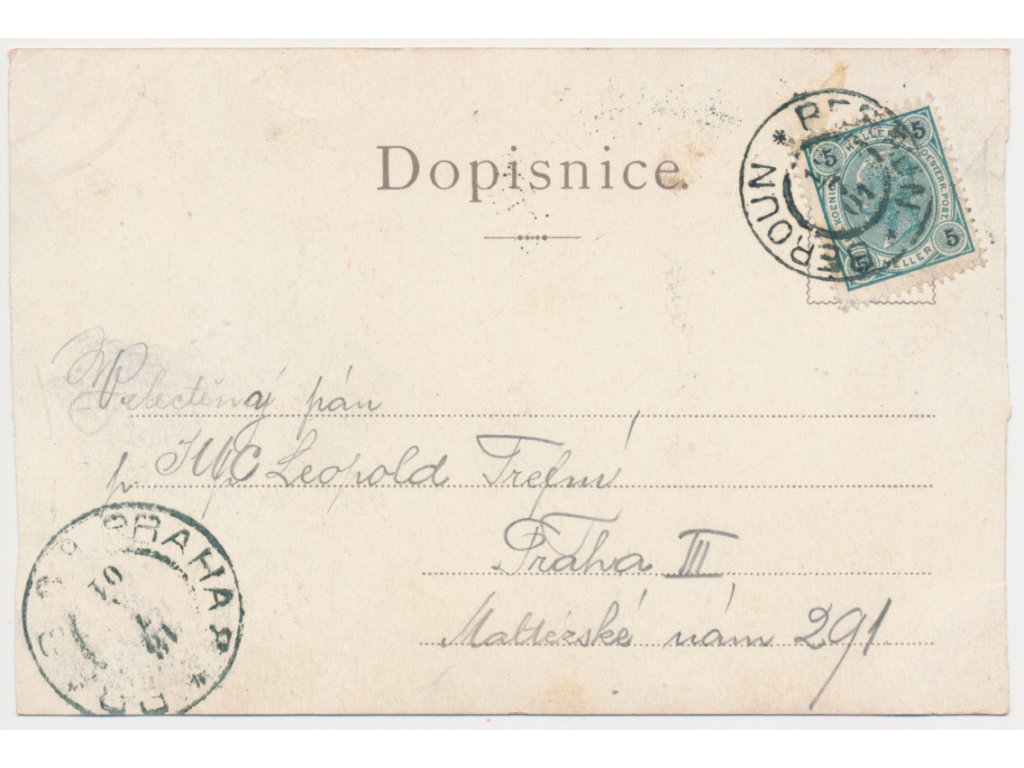 Dopisnice.
BEROUN * BEROUN *
5 5 5 5
HELLER HELLER
Velectěný pán
p. JUC Leopold Trefný
Praha III
Maltézské nám 291.
PRAHA
01